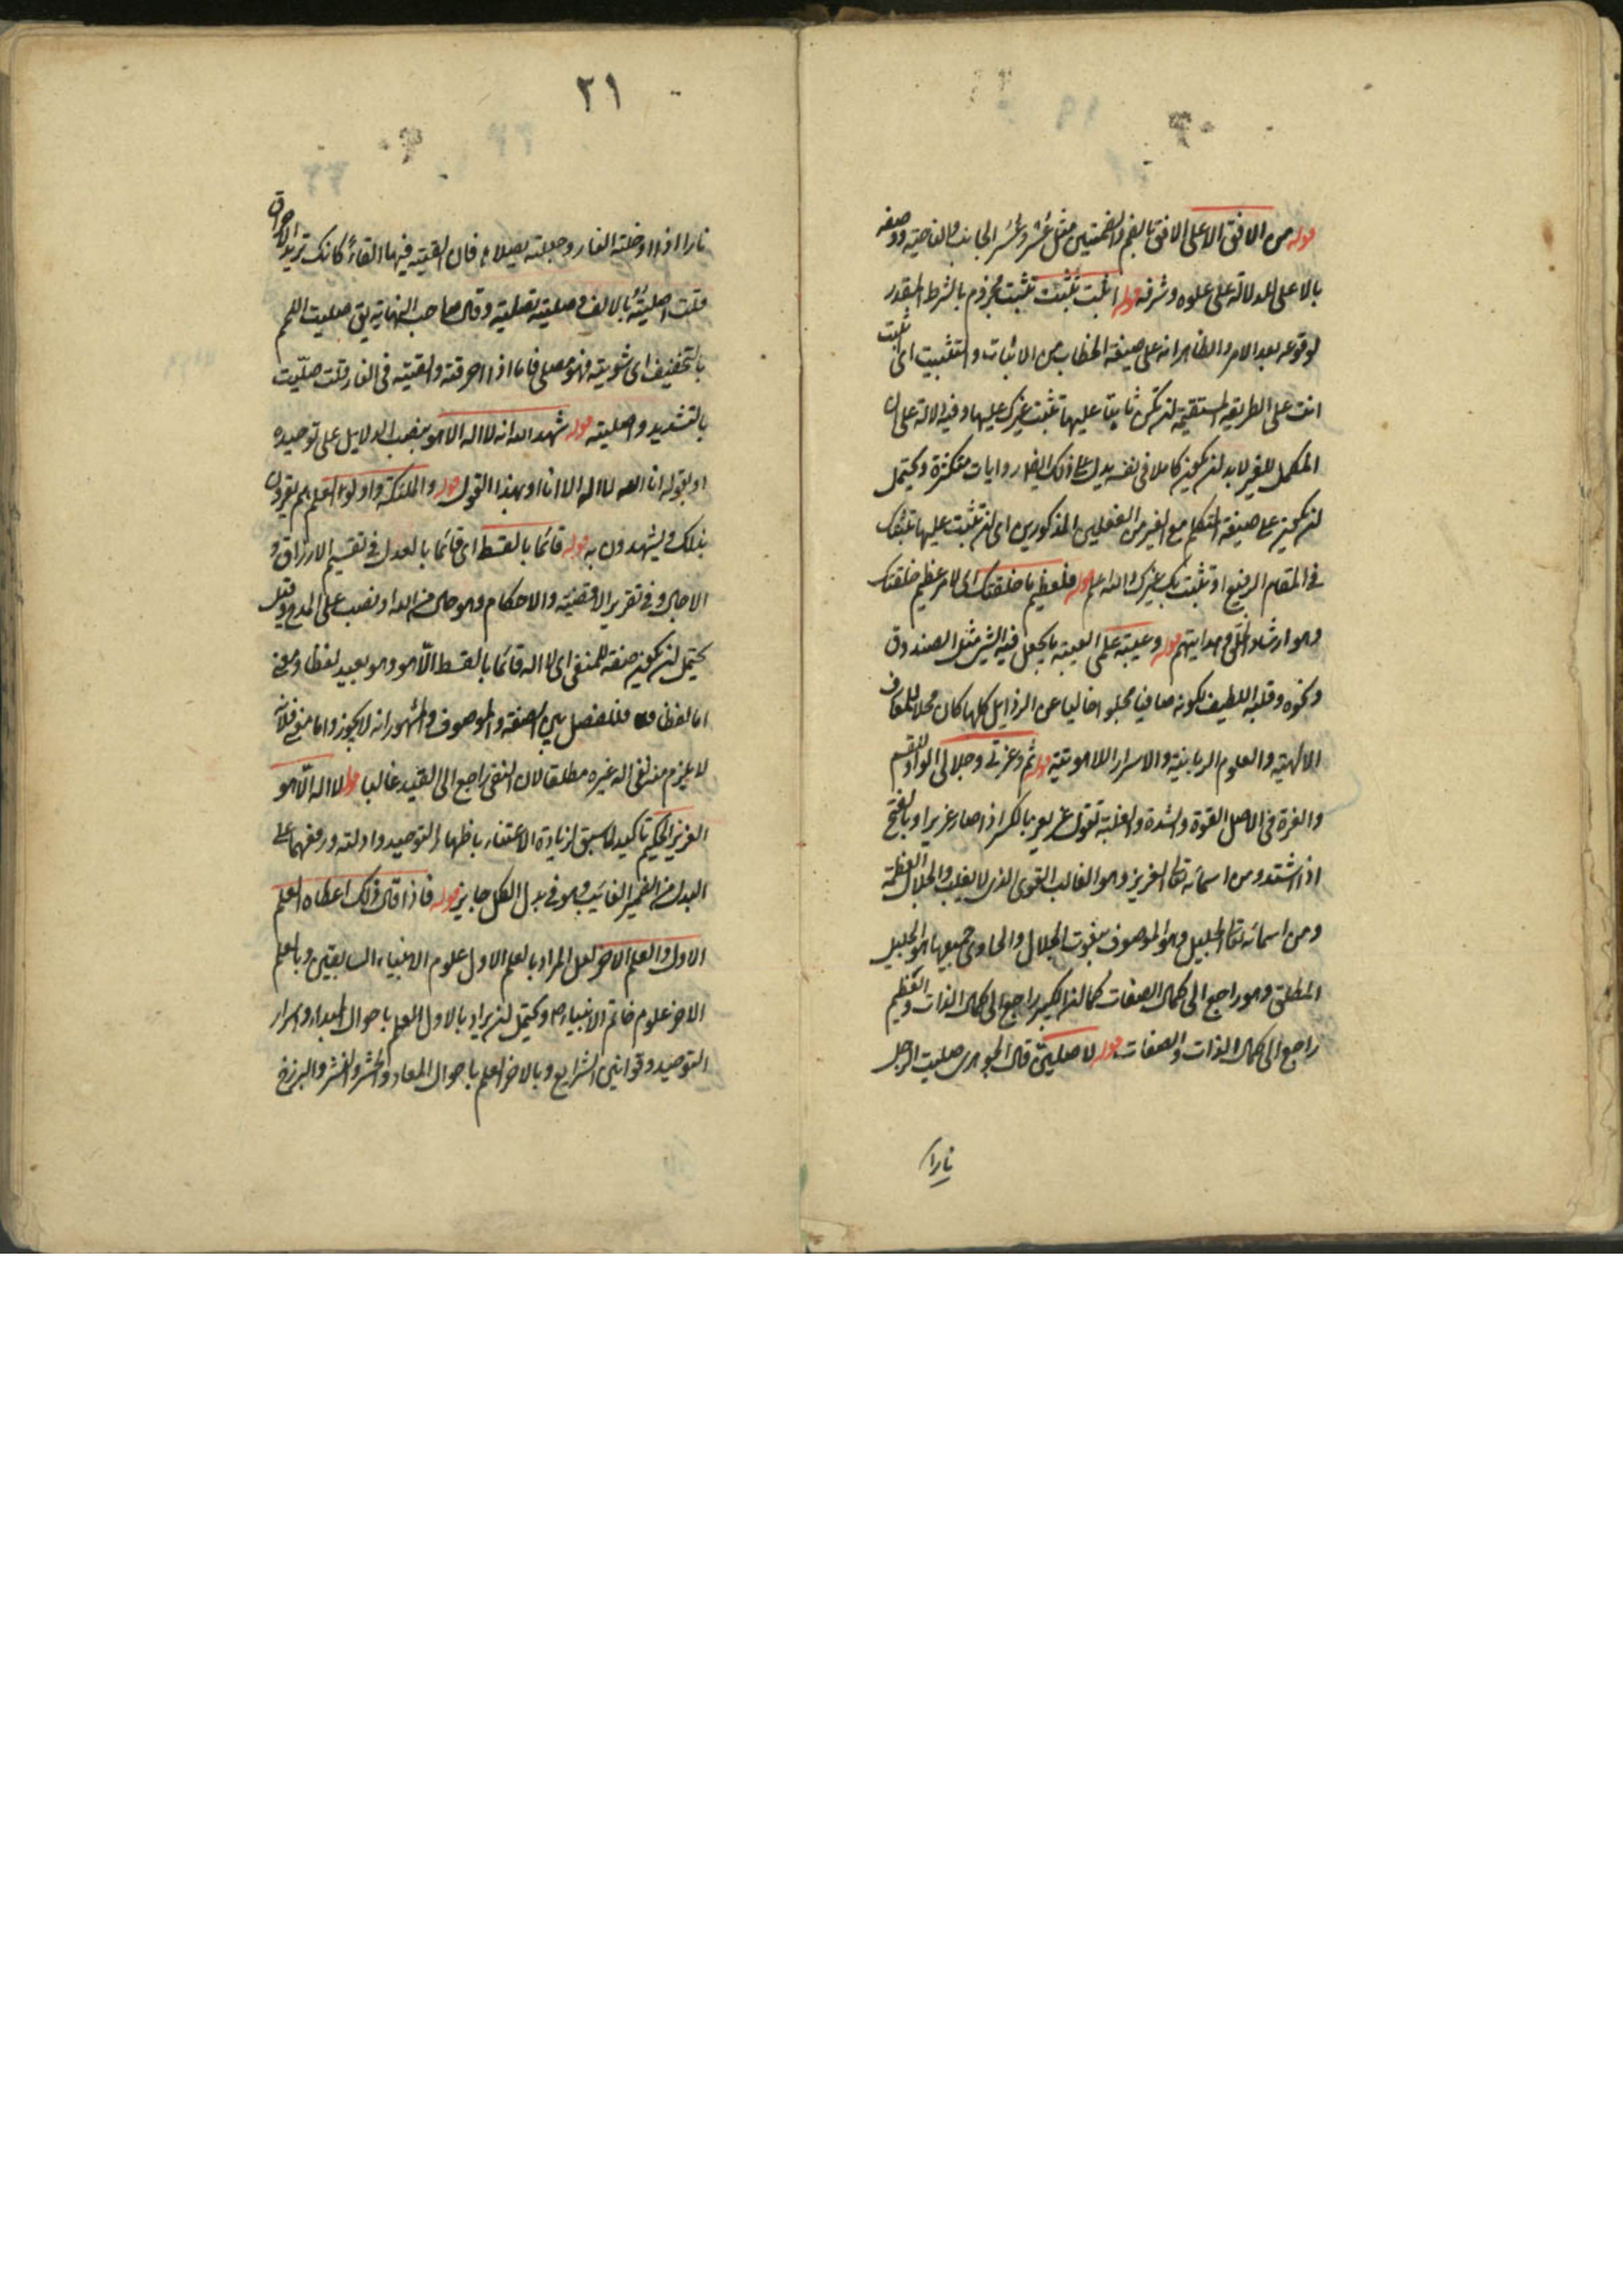 قوله من الافق الاعلى الافق بالضم وبضمتين مثل عُشْر وعُشُر الجانب والناحية ووصفه
بالاعلى للدلالة على علوه وشرفه قوله اثبت تثبت تثبت مجزوم بالشرط المقدر
لوقوعه بعد الامر والظاهر انه على صيغة الخطاب من الاثبات والتثبيت اى اثبت
انت على الطريقة المستقيمة لتكن ثابتا عليها تثبت غيرك عليها وفيه دلالة على ان
المكمل للغير لابد لن يكون كاملا فى نفسه يدل على ذلك ايضا روايات متكثرة ويحتمل
لن يكون على صيغة المتكلم مع الغير من الفعلين المذكورين اى لن تثبت عليها نثبتك
فى المقام الرفيع او نثبت بك غيرك والله اعلم قوله فلعظيم ما خلقتك اى لامر عظيم خلقتك
وهو ارشاد الخلق وهدايتهم قوله وعيبة علمى العيبة ما يجعل فيه الشئ مثل الصندوق
ونحوه وقلبه اللطيف لكونه صافيا مجلوا خاليا عن الرذايل كلها كان محلا للمعارف
الالهية والعلوم الربانية والاسرار اللاهوتية قوله ثم وعزتى وجلالى الواو للقسم
والعزة فى الاصل القوة والشدة والغلبة تقول عز يعز بالكسر اذا صار عزيزا وبالفتح
اذا اشتد ومن اسمائه تعالى العزيز وهو الغالب القوى الذى لا يغلب والجلال العظمة
ومن اسمائه تعالى الجليل وهو الموصوف بنعوت الجلال والحاوى جميعها هو الجليل
المطلق وهو راجع الى كمال الصفات كما لن الكبير راجع الى كمال الذات والعظيم
راجع الى كمال الذات والصفات قوله لاصلينّ قال الجوهرى صليت الرجل
نارا
٢١
نارا اذا ادخلته النار وجعلته يصلاها فان القيته فيها القاءً كانك تريد الاحراق
قلت اصليتُه بالالف وصليته تصلية وقال صاحب النهاية يق صليت اللحم
بالتخفيف اى شويته فهو مصلى فاما اذا احرقته والقيته فى النار قلت صلّيت
بالتشديد واصليته قوله شهد الله انه لا اله الا هو بنصب الدلايل على توحيده
او بقوله انا الله لا اله الا انا او بهذا القول قوله والملئكة واولوا العلم هم يقرون
بذلك ويشهدون به قوله قائما بالقسط اى قائما بالعدل فى تقسيم الارزاق و
الاجال وفى تقرير الاقضية والاحكام وهو حال من الله او نصب على المدح وقيل
يحتمل لن يكون صفة للمنفى اى لا اله قائما بالقسط الّا هو وهو بعيد لفظا ومعنى
اما لفظا فللفصل بين الصفة والموصوف والمشهور انه لا يجوز واما معنى فلانه
لا يلزم منه نفى اله غيره مطلقا لان النفى راجع الى القيد غالبا قوله لا اله الّا هو
العزيز الحكيم تاكيد لما سبق لزيادة الاعتناء باظهار التوحيد وادلته ورفعهما على
البدل من الضمير الغائب وهو فى بدل الكل جايز قوله فاذا قال ذلك اعطاه العلم
الاول والعلم الاخر لعل المراد بالعلم الاول علوم الانبياء السابقين وبالعلم
الاخر علوم خاتم الانبياء ص ويحتمل لن يراد بالاول العلم باحوال المبداء واسرار
التوحيد وقوانين الشرايع وبالاخر العلم باحوال المعاد والحشر والنشر والبرزخ